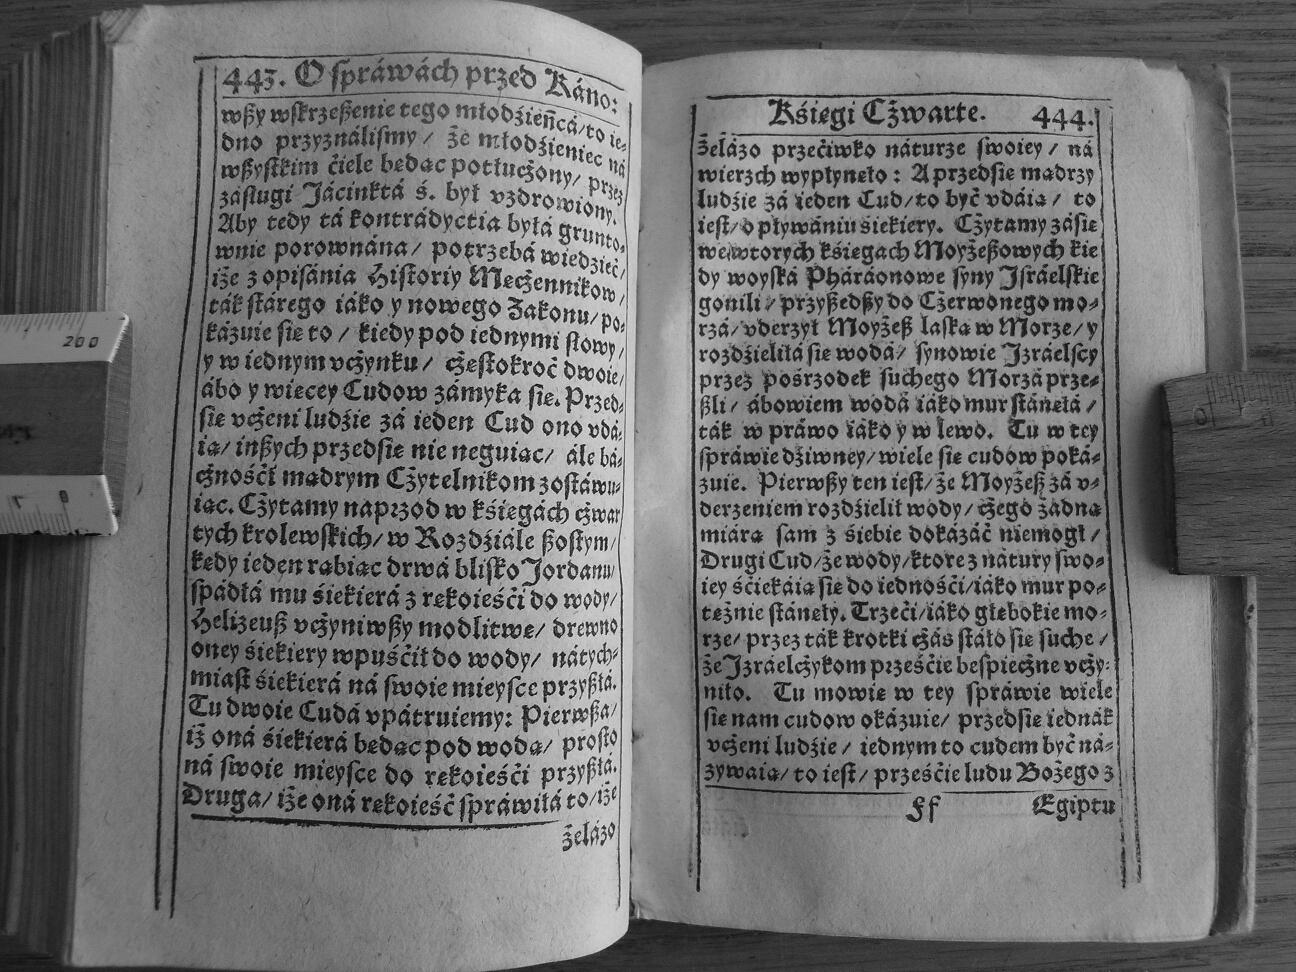 443. O spráwách przed Káno:
wßy wskrzeßenie tego młodźieńcá/to ie-
dno przyználismy / że młodźieniec ná
wßystkim ćiele będąc potłuczony/ przez
zasługi Jácinktá ś. był vzdrowiony.
Aby tedy tá kontrádyctia byłá grunto-
wnie porownána/ potrzebá wiedzieć/
iże z opisánia Historiy Męczennikow/
ták stárego iáko y nowego Zakonu/ po-
kázuie się to / kiedy pod iednymi słowy/
y w iednym vczynku / częstokroć dwoie/
ábo y więcey Cudow zámyka się. Przed-
się vczeni ludźie zá ieden Cud ono vdá-
ią/ inßych przedsię nie neguiąc/ ále bá-
cznośći mądrym Czytelnikom zostáwu-
iąc. Czytamy naprzod w kśięgách czwar
tych krolewskich/ w Rozdźiále ßostym/
kedy ieden rąbiąc drwá blisko Jordanu/
spádłá mu śiekierá z rękoieśći do wody/
Helizeuß vczyniwßy modlitwę/ drewno
oney śiekiery wpuśćił do wody/ nátych-
miast śiekierá ná swoie mieysce przyßłá.
Tu dwoie Cudá vpátruiemy: Pierwßa/
iż oná śiekierá będąc pod wodą/ prosto
ná swoie mieysce do rękoieśći przyßłá.
Druga/ iże oná rękoieść spráwiłá to/iże
żelázo
Kśięgi Czwarte. 444.
żelázo przećiwko náturze swoiey / ná
wierzch wypłynęło : A przedsię mądrzy
ludźie zá ieden Cud/to być vdáią / to
iest/ o pływániu śiekiery. Czytamy zásię
we wtorych kśięgach Moyżeßowych kie
dy woyská Pháráonowe syny Jsráelskie
gonili / przyßedßy do Czerwonego mo-
rzá/ vderzył Moyżeß laską w Morze/ y
rozdźieliłá się wodá/ synowie Jzráelscy
przez pośrzodek suchego Morzá prze-
ßli / ábowiem wodá iáko mur stánęłá /
ták w práwo iáko y w lewo. Tu w tey
spráwie dźiwney/ wiele się cudow poká-
zuie. Pierwßy ten iest/ że Moyżeß zá v-
derzeniem rozdźielił wody/ czego żadną
miárą sam z śiebie dokázáć niemogł /
Drugi Cud/że wody/ktore z nátury swo-
iey śćiekáią się do iednośći/iáko mur po-
tężnie stánęły. Trzeći/iáko głębokie mo-
rze/ przez ták krotki czás stáło się suche /
że Jzráelczykom prześćie bespieczne vczy-
niło. Tu mowię w tey spráwie wiele
się nam cudow okázuie/ przedsię iednák
vczeni ludźie / iednym to cudem być ná-
zywaią/ to iest/ prześćie ludu Bożego z
Ff Egiptu